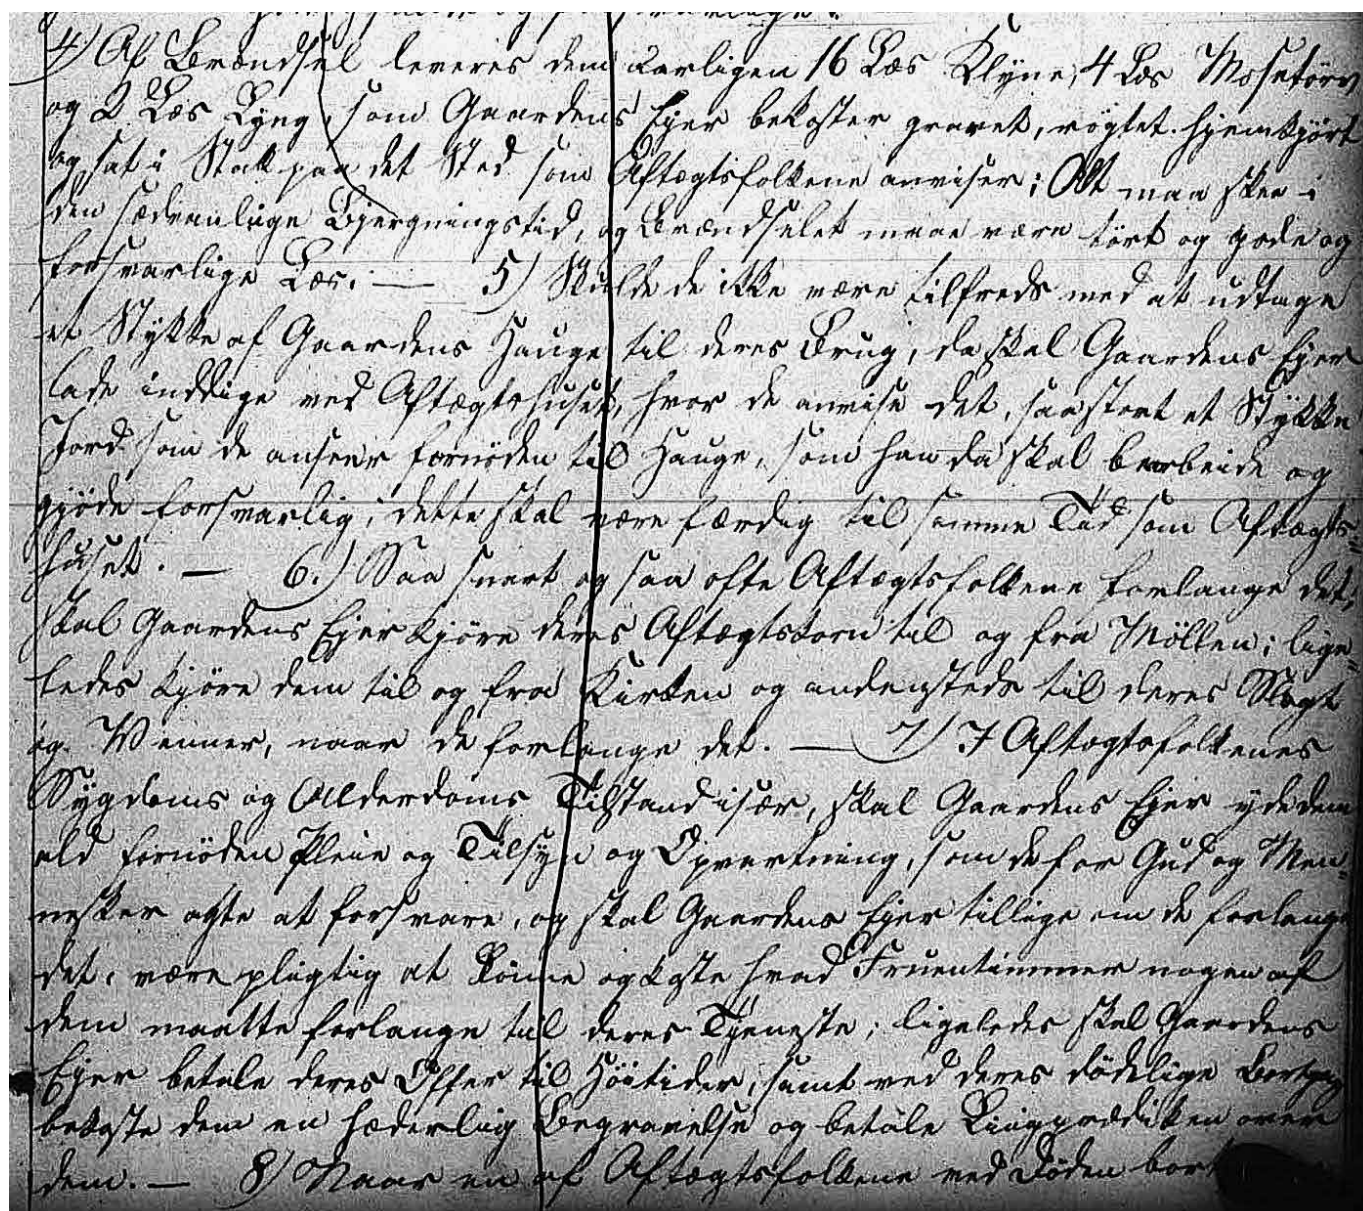 4) Af Brændsel leveres dem aarligen 16 Læs Klyne, 4 Læs Mosetørv
og 2 Læs Lyng, som Gaardens Ejer bekoster gravet, røgtet, hjemkjørt
og sat i Stak paa det Sted som Aftægtsfolkene anviser; Alt maa skee i
den sædvanlige Bjergningstid, og Brændselet maae være tört og gode og
forsvarlige Læs. — 5) Skulde de ikke være tilfreds med at udtage
et Stykke af Gaardens Hauge til deres Brug, da skal Gaardens Ejer
lade inddige ved Aftægtshuset, hvor de anvise det, saa stort et Stykke
Jord som de anseer fornöden til Hauge, som han da skal bearbeide og
gjöde forsvarlig; dette skal være færdig til samme Tid som Aftægts-
huset. — 6.) Saa snart og saa ofte Aftægtsfolkene forlange det,
skal Gaardens Ejer kjöre deres Aftægtskorn til og fra Möllen; lige-
ledes kjöre dem til og fra Kirken og andensteds til deres Slægt
og Venner, naar de forlange det. — 7) I Aftægtsfolkenes
Sygdoms og Alderdoms Tilstand især, skal Gaardens Ejer yde dem
ald fornöden Pleie og Tilsyn og Opvartning, som de for Gud og Men-
nesker agte at forsvare, og skal Gaardens Ejer tillige om de forlange
det, være pligtig at lönne og koste hvad Fruentimmer nogen af
dem maatte forlange til deres Tjeneste; ligeledes skal Gaardens
Ejer betale deres Offer til Höitider, samt ved deres dödelige Bortgang
bekoste dem en hæderlig Begravelse og betale Liigprædiken over
dem. — 8) Naar en af Aftægtsfolkene ved Döden bort